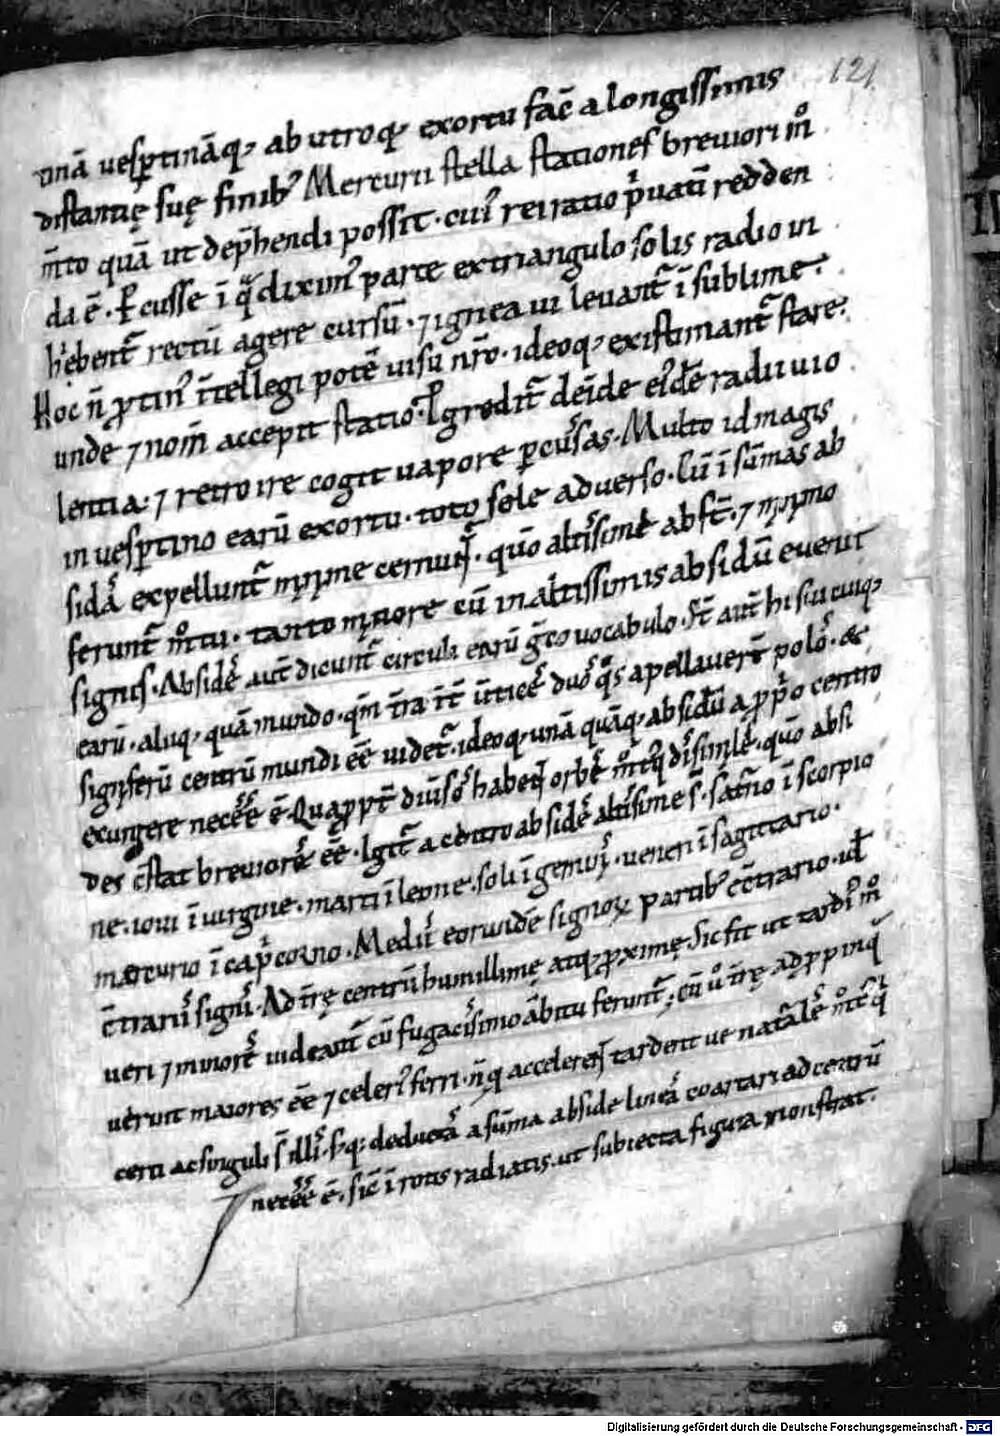 121
tinā ueſptināq; ab utroq; exortu fac̄ a longiſſimis
diſtantię ſuę finib; Mercurii ſtella ſtationeſ breuiori m̊
m̄to quā ut dep̄hendi poſſit · cui' rei ratio p̱uatī redden
da ē · ꝑcuſſe ī q̄ diximꝰ parte ex triangulo ſolis radio in
hibent̄ rectū agere curſū · ⁊ ignea ui leuant̄ ī ſublime ·
Hoc n̄ ꝓtinꝰ īntellegi potē uiſu nr̄o · ideoq; exiſtimant̄ ſtare ·
unde ⁊ nom̄ accepit ſtatio · ꝓgredit̄ deīde eiꝰdē radii uio
lentia : ⁊ retro ire cogit uapore ꝑcuſſas · Multo id magis
in ueſptino earū exortu · toto ſole aduerſo · Cū ī ſūmas ab
ſidaſ expellunt̄ minime cernunt̄ · quō altiſſime abſt̄ · ⁊ minimo
ferunt̄ m̊tu · tanto minore cū in altiſſimis abſidū euenit
ſigniſ · Abſideſ aut̄ dicunt̄ circuli earū g̊co uocabulo · St̄ aut̄ hi ſui cuiq;
earū · aliiq; quā mundo · qm̄ t̄ra īt̄ ūticeſ duoſ q̊s apellauert̄ poloſ · &
ſigniferū centrū mundi eē uidet̄ · ideoq; unā quāq; abſidū a ꝓpo centro
exurgere neceſſe ē · Quapropt̄ diuſoſ habent orbeſ m̊tuſq; diſſimileſ · quō abſi
des c̄ſtat breuioreſ eē · Igit̄ a centro abſideſ altiſſime ſ̄ · ſat̄no ī ſcorpio
ne · ioui ī uirgine · marti ī leone · ſoli ī geminiſ · ueneri ī ſagittario ·
mercurio ī cap̱corno · Mediiſ eorundē ſignoꝝ partib; ē c̄trario · ul̄
c̄trariiſ ſigniſ · Ad t̄rę centrū humillimę atq; ꝓximę · Sic fit ut tardiꝰ m̊
ueri ⁊ minoreſ uideant̄ cū fugaciſſimo ābitu ferunt̄ ; cū ů t̄rę adꝓpinq̄
uerunt maiores eē ⁊ celeriꝰ ferri · n̄ q̄ accelerent tardent ue natāleſ m̊tuſ q̄
certi ac ſinguli ſ̄ illiſ · ſ; q; deductaſ a ſūma abſide lineaſ coartari ad centrū
neceſſe ē · ſic̄ ī rotis radiatis · ut ſubiecta figura monſtrat ·
Digitalisierung gefördert durch die Deutsche Forschungsgemeinschaft - DFG